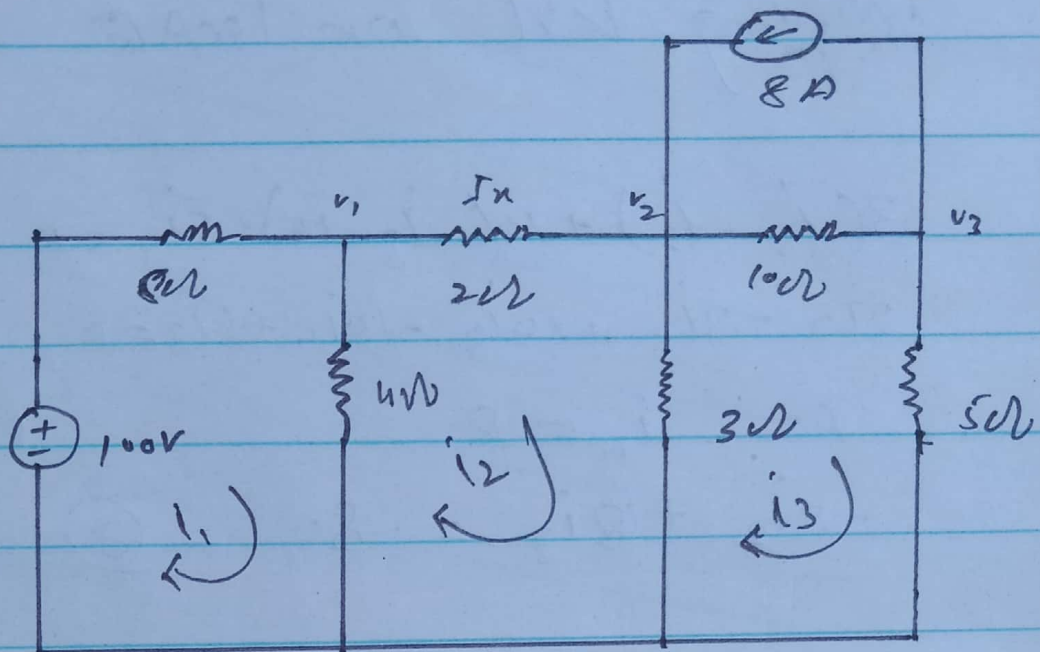 8 A
v₁
Ix
v₂
v₃
8Ω
2Ω
10Ω
4Ω
3Ω
5Ω
+
-
100V
i₁
i₂
i₃